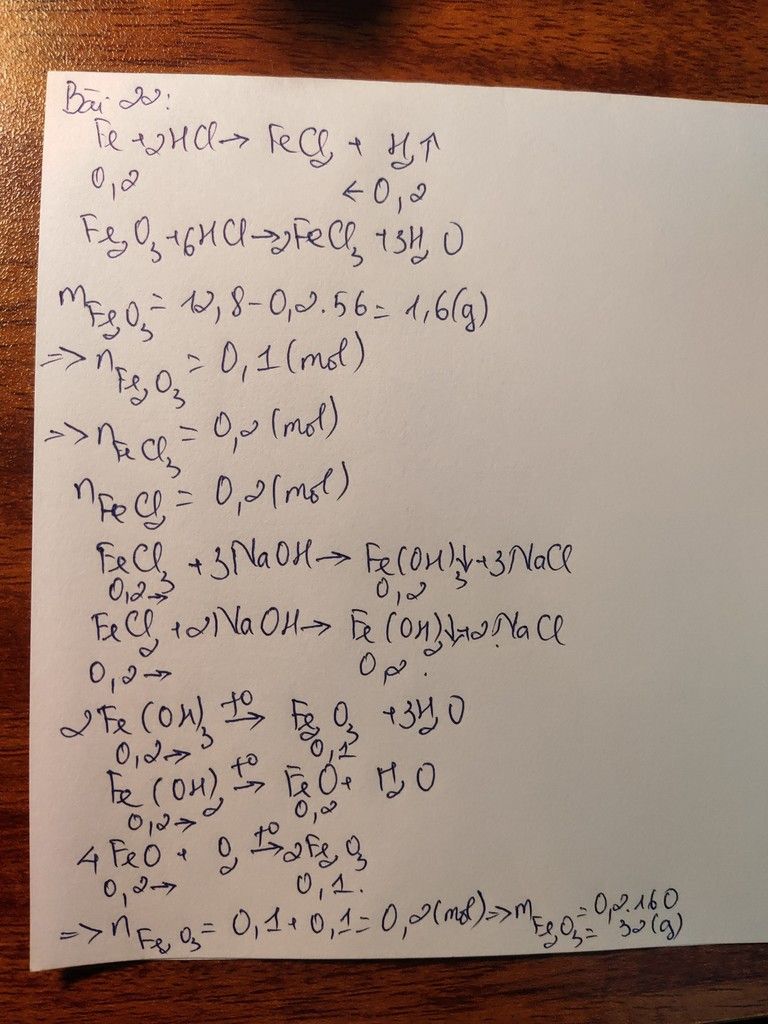 Bài 22:
Fe + 2HCl → FeCl₂ + H₂↑
0,2 ← 0,2
Fe₂O₃ + 6HCl → 2FeCl₃ + 3H₂O
m Fe₂O₃ = 12,8 - 0,2.56 = 1,6(g)
=> n Fe₂O₃ = 0,1 (mol)
=> n FeCl₃ = 0,2 (mol)
n FeCl₂ = 0,2 (mol)
FeCl₃ + 3NaOH → Fe(OH)₃↓ + 3NaCl
0,2 → 0,2
FeCl₂ + 2NaOH → Fe(OH)₂↓ + 2NaCl
0,2 → 0,2.
2Fe(OH)₃ t° → Fe₂O₃ + 3H₂O
0,2 → 0,1
Fe(OH)₂ t° → FeO + H₂O
0,2 → 0,2
4FeO + O₂ t° → 2Fe₂O₃
0,2 → 0,1.
=> n Fe₂O₃ = 0,1 + 0,1 = 0,2 (mol) => m Fe₂O₃ = 0,2.160
= 32(g)